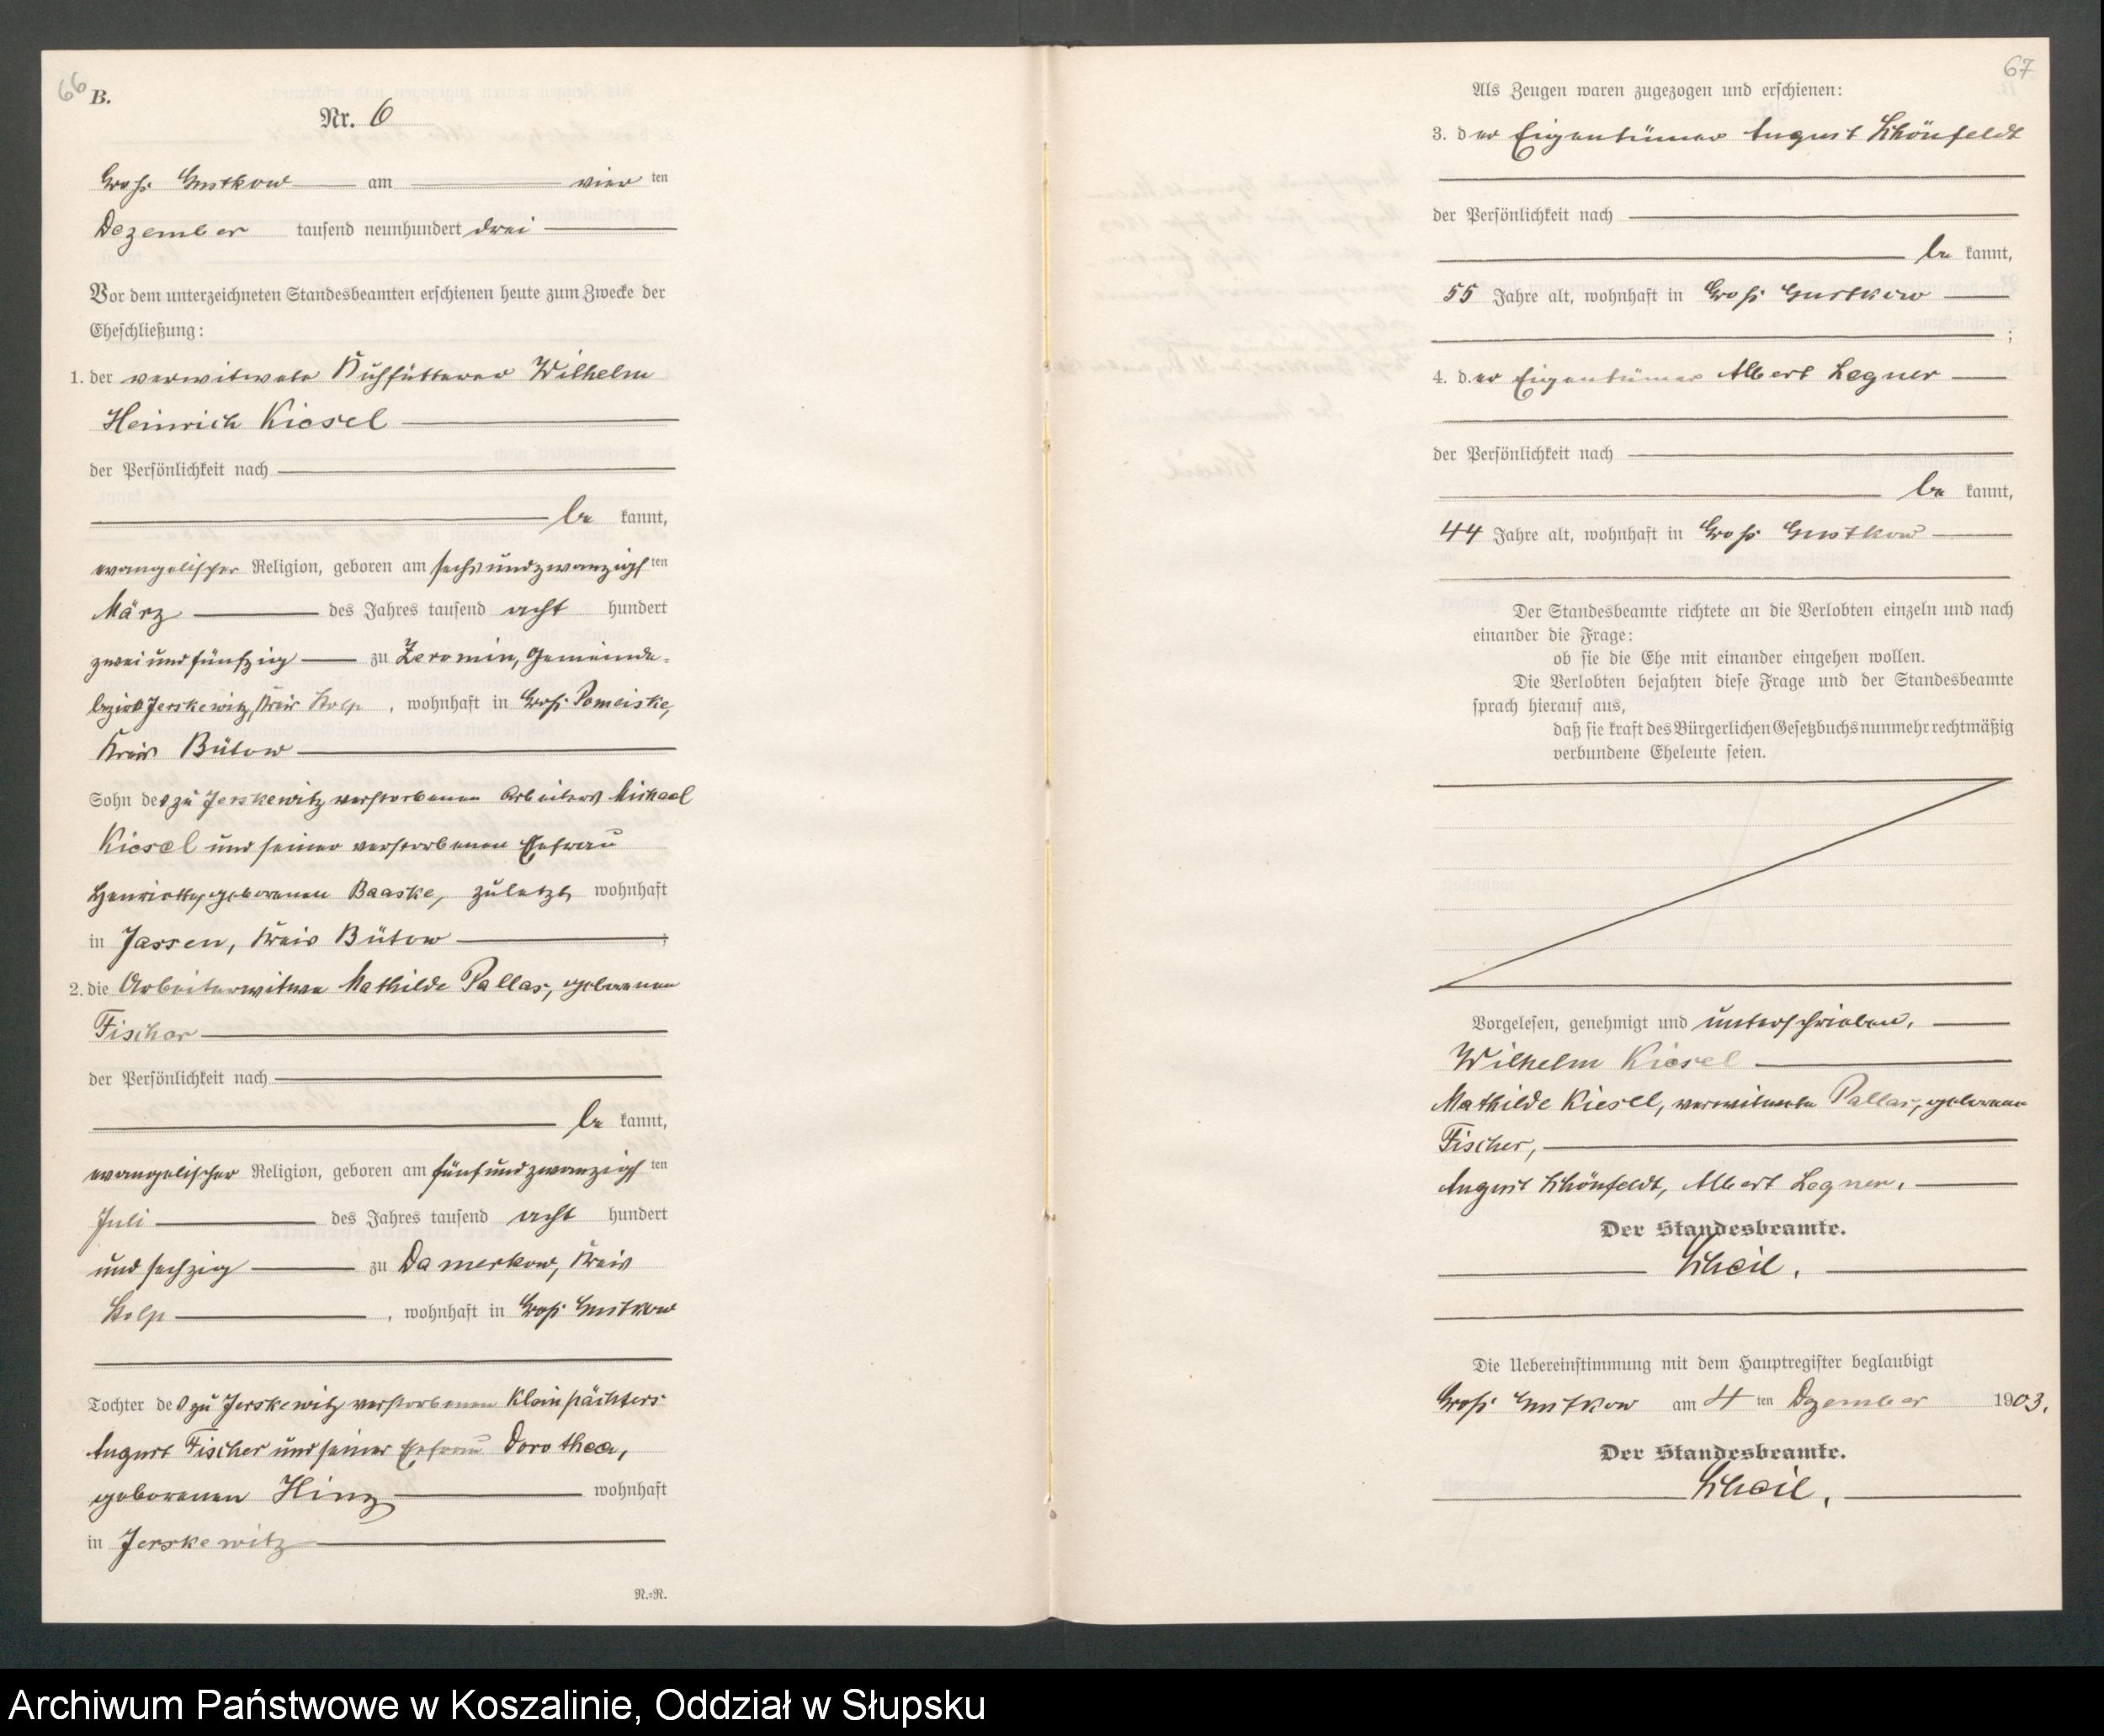 66
B.
Nr. 6
Groß Gustkow am vierten
Dezember tausend neunhundert drei
Vor dem unterzeichneten Standesbeamten erschienen heute zum Zwecke der
Eheschließung:
1. der verwitwete Kuhfütterer Wilhelm
Heinrich Kiesel
der Persönlichkeit nach
be kannt,
evangelischer Religion, geboren am sechsundzwanzigsten
März des Jahres tausend acht hundert
zweiundfünfzig zu Zeromin, Gemeinde-
bezirk Jerskewitz, Kreis Stolp, wohnhaft in Groß Pomeiske,
Kreis Bütow
Sohn des zu Jerskewitz verstorbenen Arbeiters Michael
Kiesel und seiner verstorbenen Ehefrau
Henriette, geborenen Baaske, zuletzt wohnhaft
in Jassen, Kreis Bütow;
2. die Arbeiterwitwe Mathilde Pallas, geborenen
Fischer
der Persönlichkeit nach
be kannt,
evangelischer Religion, geboren am fünfundzwanzigsten
Juli des Jahres tausend acht hundert
und sechzig zu Damerkow, Kreis
Stolp, wohnhaft in Groß Gustkow
Tochter des zu Jerskewitz verstorbenen Kleinpächters
August Fischer und seiner Ehefrau Dorothea,
geborenen Hinz wohnhaft
in Jerskewitz
N.-R.
67
Als Zeugen waren zugezogen und erschienen:
3. der Eigentümer August Schönfeldt
der Persönlichkeit nach
be kannt,
55 Jahre alt, wohnhaft in Groß Gustkow
;
4. der Eigentümer Albert Legner
der Persönlichkeit nach
be kannt,
44 Jahre alt, wohnhaft in Groß Gustkow
Der Standesbeamte richtete an die Verlobten einzeln und nach
einander die Frage:
ob sie die Ehe mit einander eingehen wollen.
Die Verlobten bejahten diese Frage und der Standesbeamte
sprach hierauf aus,
daß sie kraft des Bürgerlichen Gesetzbuchs nunmehr rechtmäßig
verbundene Eheleute seien.
Vorgelesen, genehmigt und unterschrieben.
Wilhelm Kiesel
Mathilde Kiesel, verwitwete Pallas, geborene
Fischer,
August Schönfeldt, Albert Legner.
Der Standesbeamte.
Scheil.
Die Uebereinstimmung mit dem Hauptregister beglaubigt
Groß Gustkow am 4ten Dezember 1903.
Der Standesbeamte.
Scheil.
Archiwum Państwowe w Koszalinie, Oddział w Słupsku